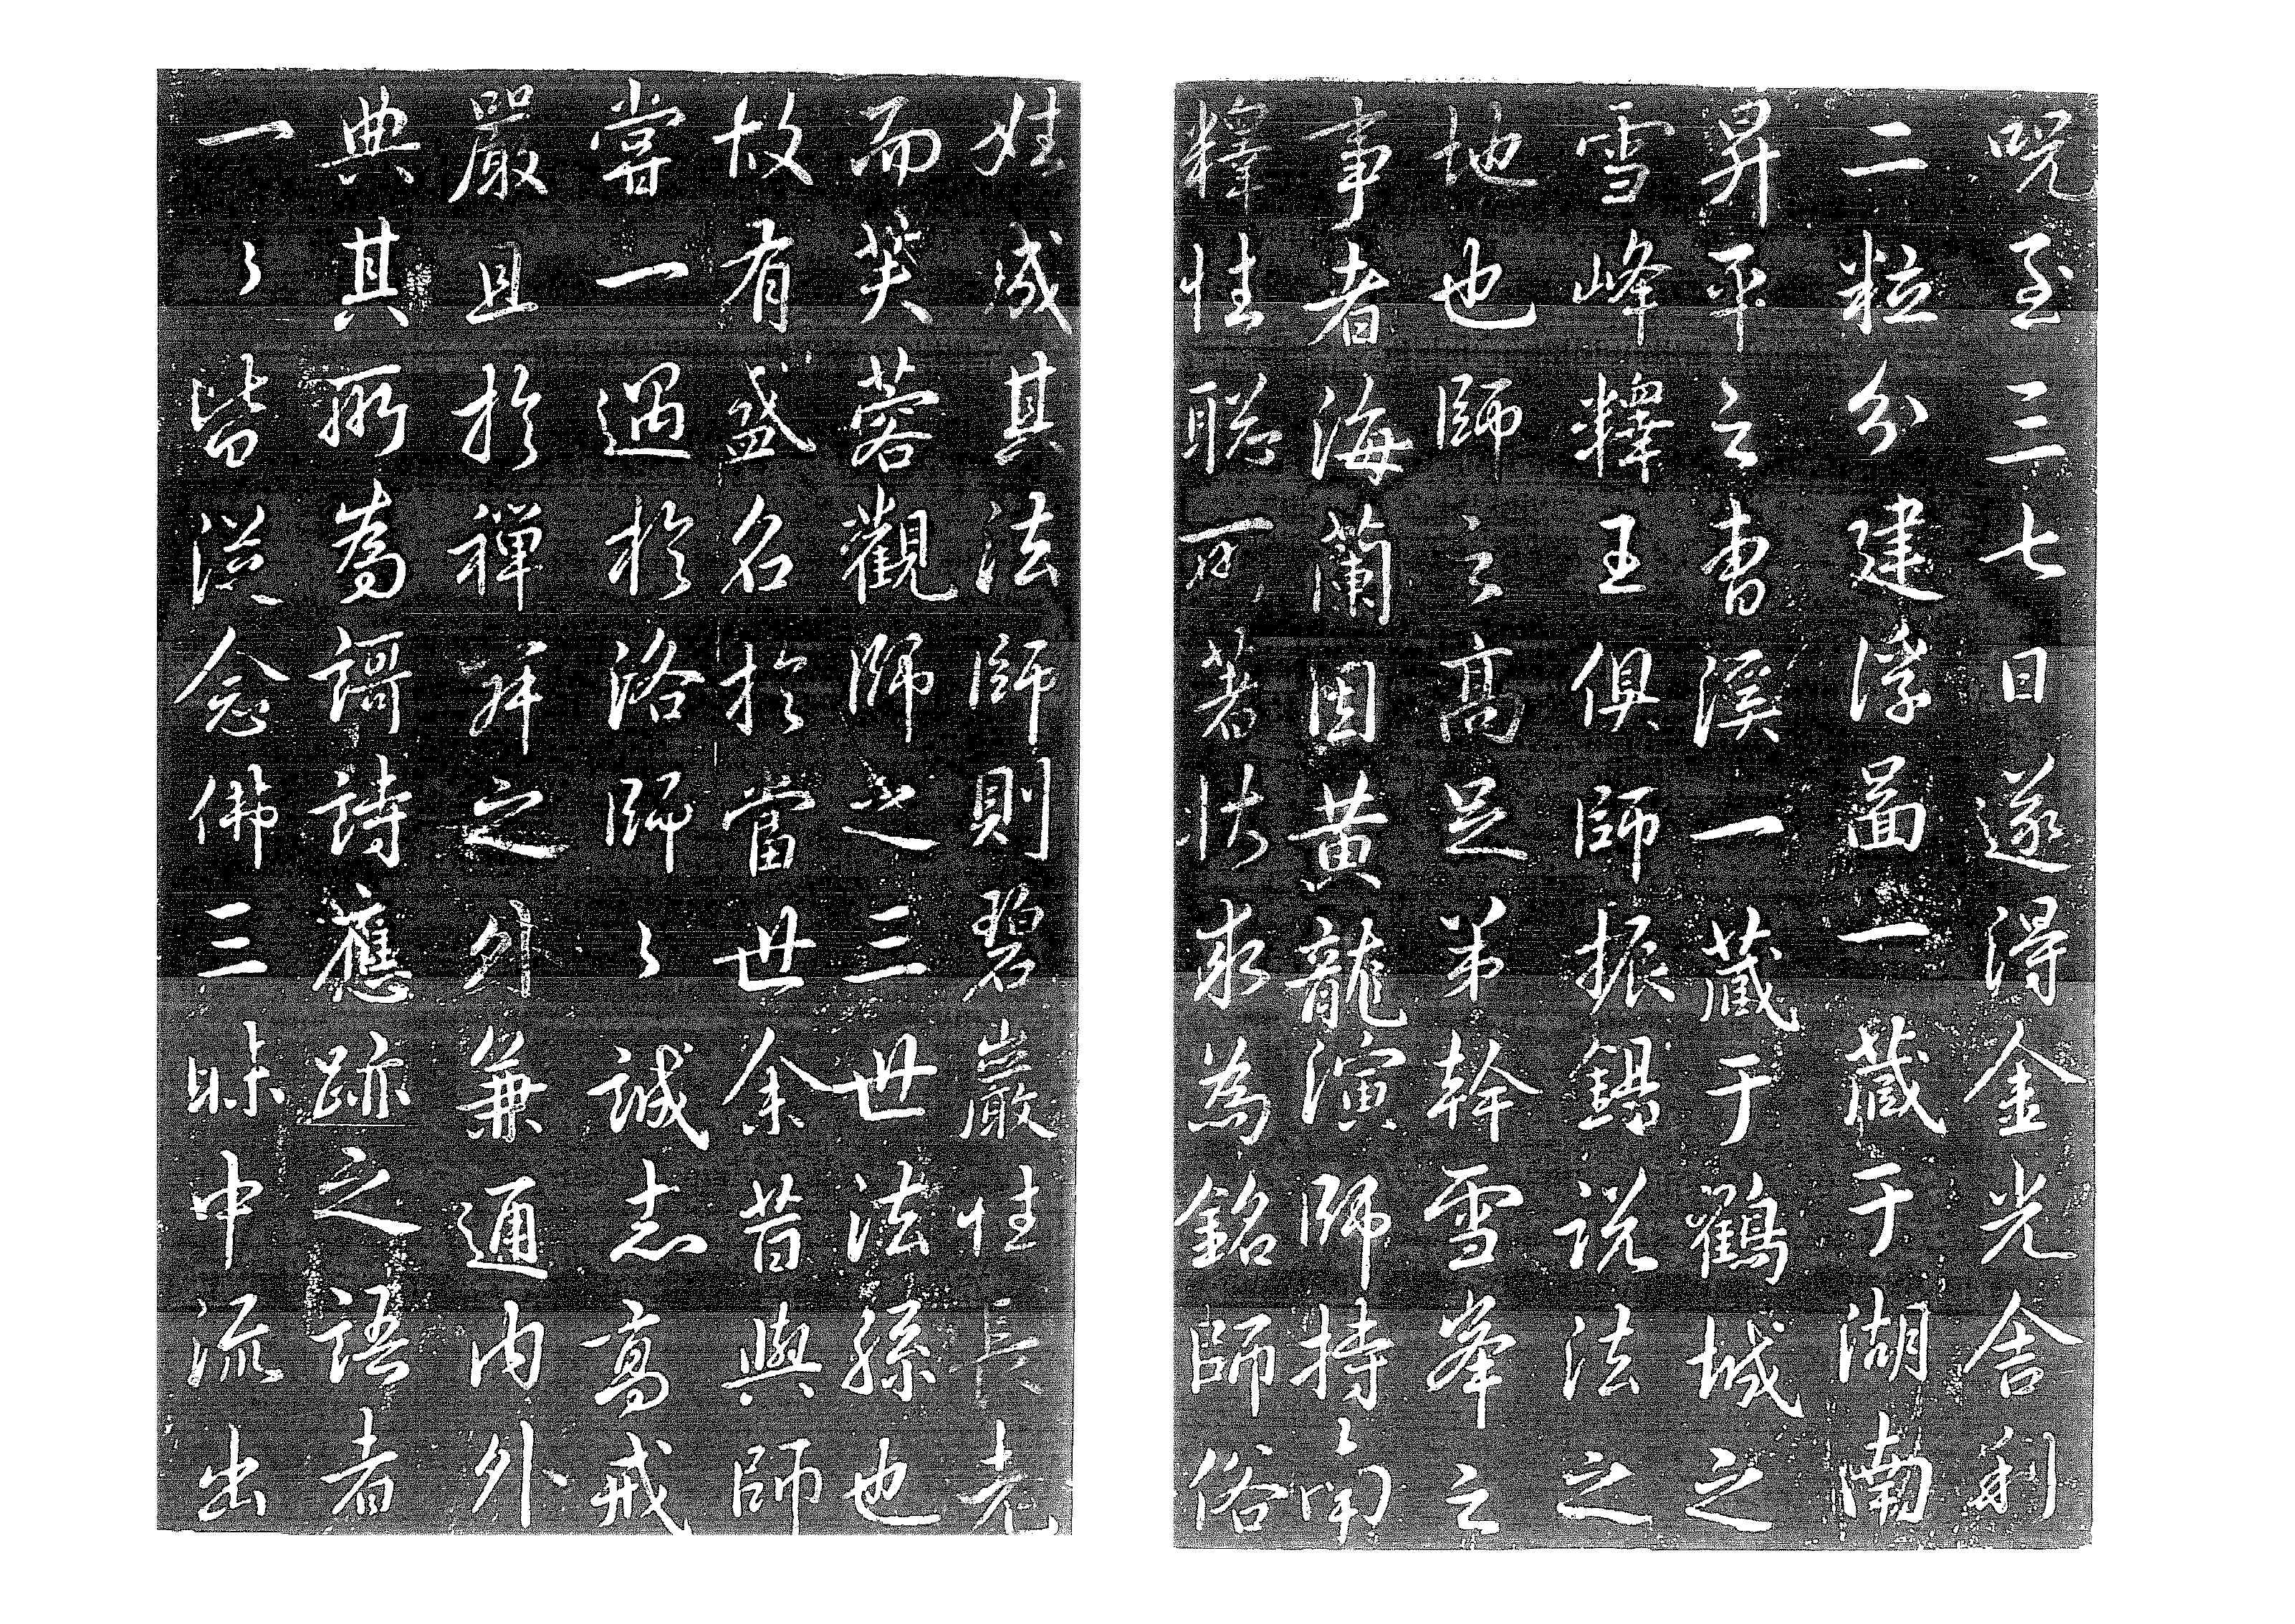 咒至三七日遂得金光舍利
二粒分建浮啚一藏于湖南
昇平之書溪一藏于鶴城之
雪峰釋王俱師振錫說法之
地也師之高足弟幹雪峯之
事者海蘭因黃龍演師持
釋性聰所著狀求為銘師俗
姓成其法師則碧巖性長老
而芙蓉觀師之三世法孫也
故有盛名於當世余昔與師
嘗一遇於洛師〻誠志高戒
嚴且於禪拜之外兼通內外
典其所為謌詩應跡之語者
一〻皆從念佛三昧中流出